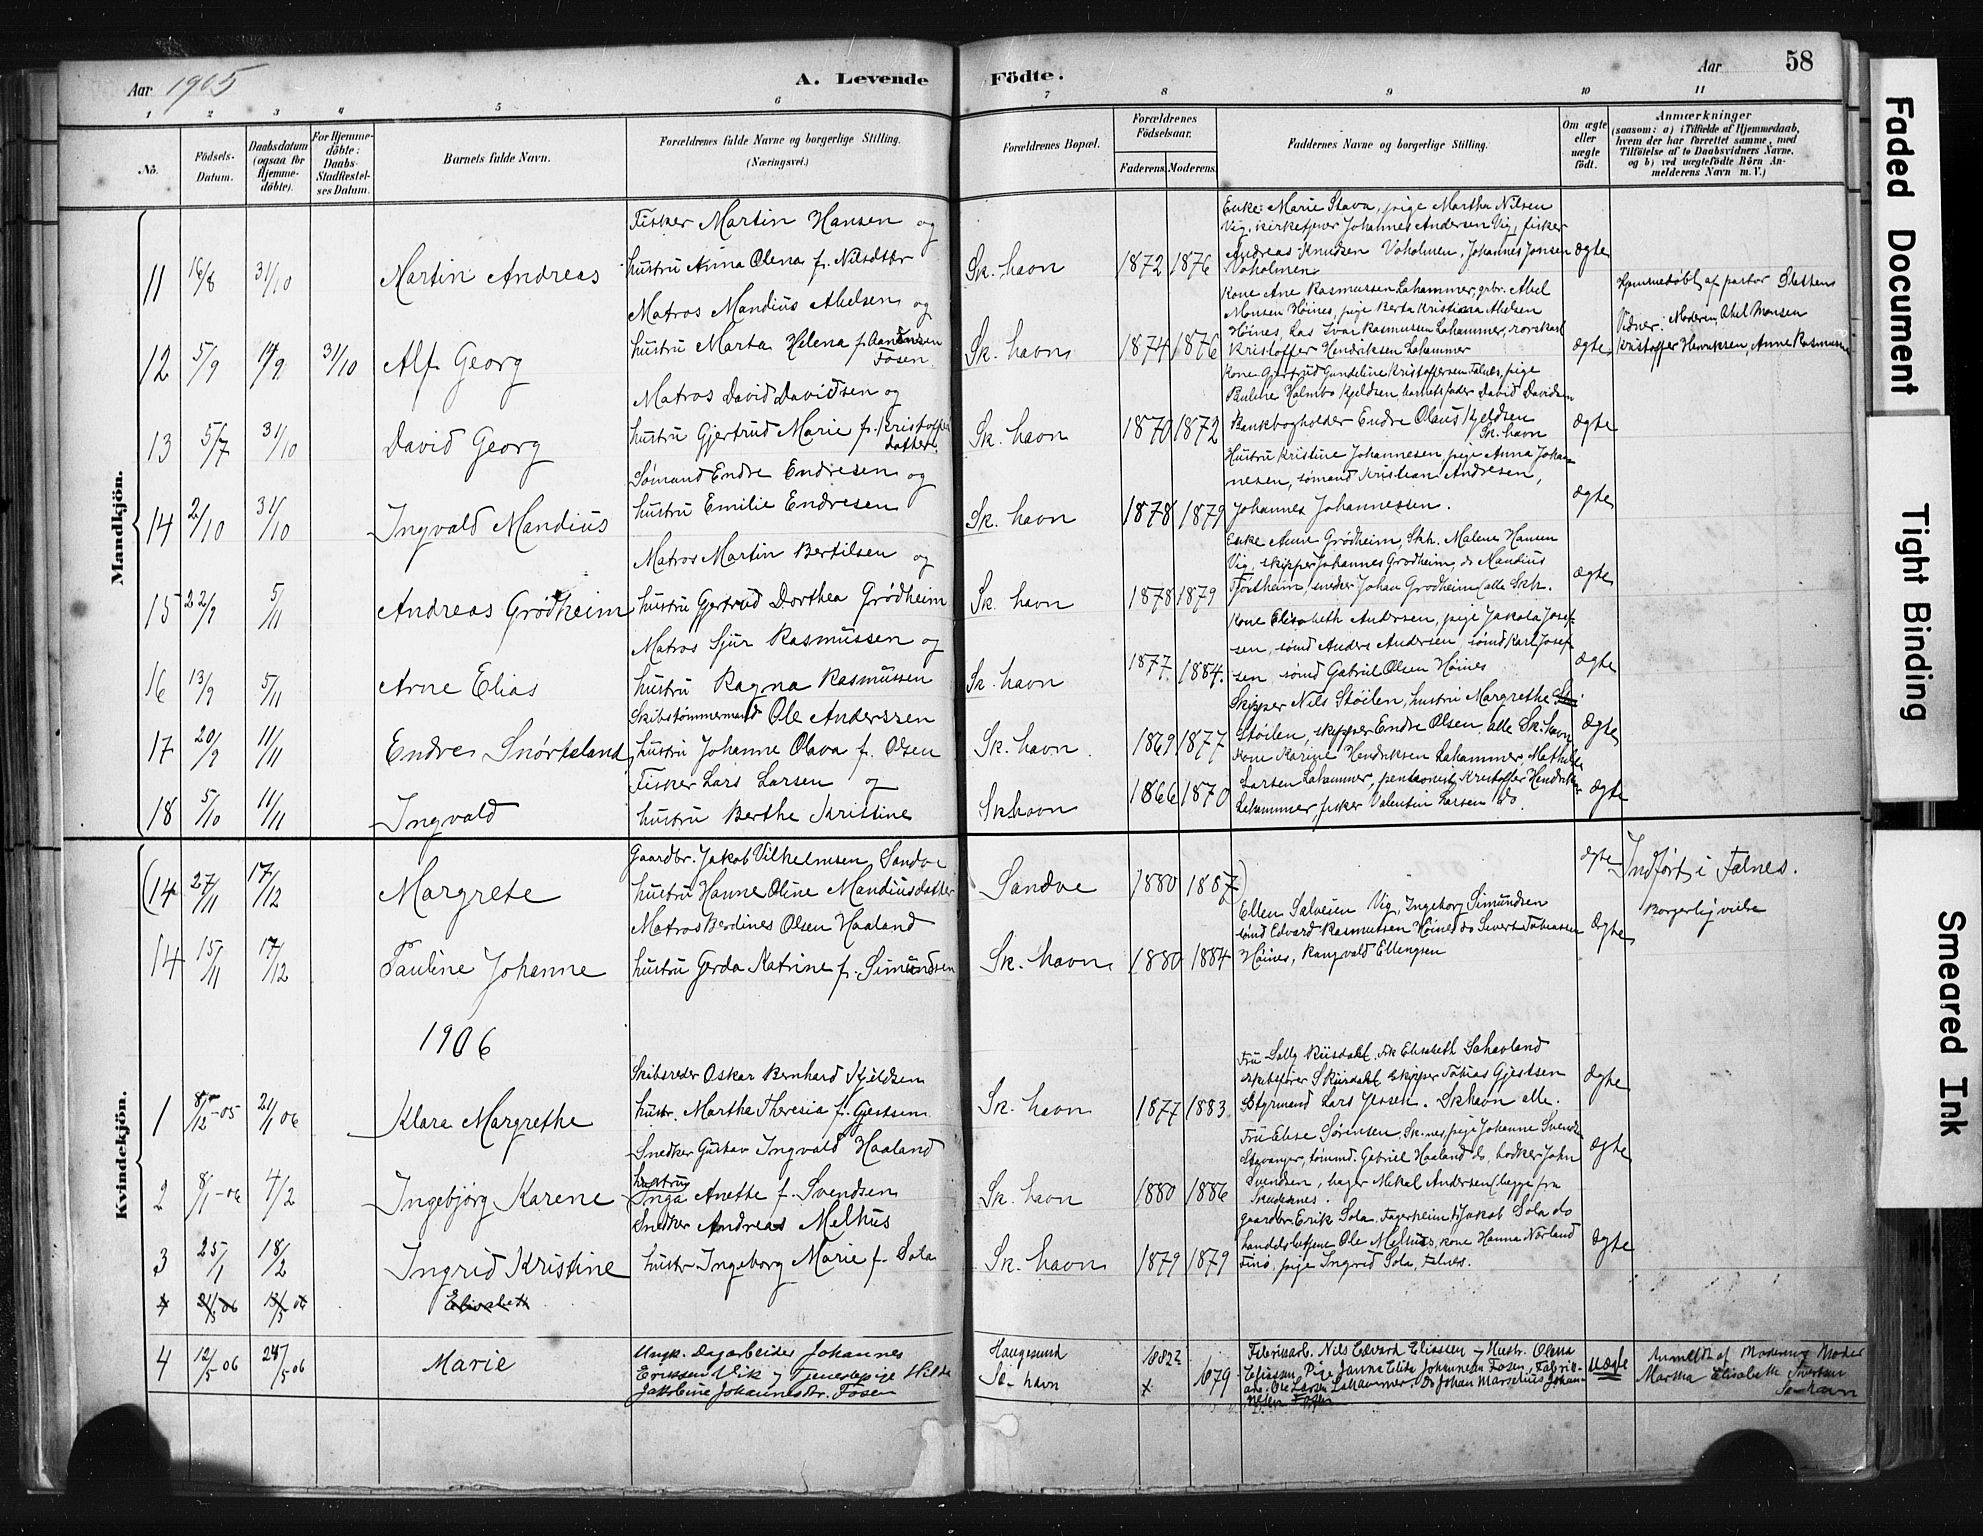 58
Aar 1905
A. Levende Födte.
Aar
1 2 3 4 5 6 7 8 9 10 11
No.
Födsels-Datum.
Daabsdatum (ogsaa for Hjemmedöbte).
For Hjemmedöbte: Daabs-Stadfæstelses Datum.
Barnets fulde Navn.
Forældrenes fulde Navne og borgerlige Stilling. (Næringsvei.)
Forældrenes Bopæl.
Forældrenes Födselsaar.
Faderens. Moderens.
Faddernes Navne og borgerlige Stilling.
Om ægte eller uægte født.
Anmærkninger
(saasom: a) i Tilfælde af Hjemmedaab,
hvem der har forrettet samme, med
Tilföielse af to Daabsvidners Navne,
og b) ved uægtefödte Börn Anmelderens Navn m. V.)
Mandkjön.
Fisker Martin Hansen og
hustru Anna Olena f. Nilsdtr
11 16/8 31/10 Martin Andreas Sk. havn 1872 1876 ægte
Enke Marie Stava, pige Martha Nilsen
Vig, kirketjener Johannes Andersen Vig, fisker
Andreas Knudsen Voholmen, Johannes Jonsen
Voholmen
Matros Mandius Abelsen og
hustru Marta Helena f. Aanensen
Fosen
12 5/9 14/9 31/10 Alf Georg Sk. havn 1874 1876 ægte
Kone Ane Rasmussen Lahammer, grbr. Abel
Monsen Höines, pige Berta Kristiana Abelsen
Höines, Las Ivar Rasmussen Lahammer, rorskarl
Kristoffer Hendriksen Lahammer
Hjemmedøbt af pastor Slettens
Vidner: Moderen, Abel Monsen
Kristoffer Henriksen, Anne Rasmussen
Matros David Davidsen og
hustru Gjertrud Marie f. Kristoffer
datter
13 5/7 31/10 David Georg Sk. havn 1870 1872 ægte
Kone Gjertrud Gundeline Kristoffersen Falnes, pige
Pauline Holmbo Kjeldsen, barnets fader David Davidsen
Bankbogholder Endre Olaus Kjeldsen
Sk. havn
Sømand Endre Endresen og
hustru Emilie Endresen
14 2/10 31/10 Ingvald Mandius Sk. havn 1878 1879 ægte
Hustru Kristine Johannesen, pige Anna Johan-
nesen, sømand Kristian Andresen,
Johannes Johannessen.
Matros Martin Bertilsen og
hustru Gjertrud Dorthea Grødheim
15 22/9 5/11 Andreas Grødheim Sk. havn 1878 1879 ægte
Enke Anne Grødheim, Skh. Malene Hansen
Vig, skipper Johannes Grødheim, do Mandius
Fjostheim, snedker Johan Grodheim (alle Skh.
Matros Sjur Rasmussen og
hustru Ragna Rasmussen
16 13/9 5/11 Arne Elias Sk. havn 1877. 1884. ægte
Kone Elisabeth Andersen, pige Jakola Josef-
sen, sømd Anders Andersen, sømd Karl Josef
sen, sømd Gabriel Olsen Høines
Skibstømmermand Ole Anderssen
hustru Johanne Olava f. Olsen
17 20/9 11/11 Endre Snørteland Sk. havn. 1869 1877 ægte
Skipper Nils Støilen, hustru Margrethe
Støilen, skipper Endre Olsen, alle Sk. havn
Fisker Lars Larsen og
hustru Berthe Kristine
18 5/10 11/11 Ingvald Sk.havn 1866 1870 ægte
Kone Karine Hendriksen Lahammer, Mathilde
Larsen Lahammer, pensionist Kristoffer Hendriksen
Lahammer, fisker Valentin Larsen do.
Kvindekjön.
Gaardbr. Jakob Vilhelmsen Sandve
hustru Hanne Oline Mandiusdatter
(14 27/11 17/12 Margrete Sandve 1880 1887) ægte Indført i Falnes.
Matros Berdines Olsen Haaland
hustru Gerda Katrine f. Simundsen
14 15/11 17/12 Pauline Johanne Sk. havn 1880 1884 ægte Borgerlig vielse
Ellen Salvesen Vig, Ingeborg Simundsen
sømd Edvard Rasmussen Høines do Sivert Tobiassen
Höines, Rangvald Ellengsen
1906
Skibsreder Oskar Bernhard Kjeldsen
hustr. Martha Theresia f. Gjertsen
1 8/12-05 21/1 06 Klara Margrethe Sk. havn 1877 1883 ægte
Fru Sally Riisdahl. Frk Elisabeth Sahavland
skibsfører S Riisdahl Skipper Tobias Gjertsen
Styrmand Lars Jessen. Sk havn alle.
Snedker Gustav Ingvald Haaland
hustru
Inga Anethe f. Svendsen
2 8/1-06 4/2 Ingebjörg Karene Sk. havn 1880 1886 ægte
Fru Elise Sørensen, Sk.nes, pige Johanne Svendse
Stavanger, sømmd. Gabriel Haaland do, bødker John
Svendsen, bager Mikal Andersen (begge fra
Skudesnes.
Snedker Andreas Melhus
hustr Ingeborg Marie f. Sola
3 25/1 18/2 Ingrid Kristine Sk. havn 1879 1879 ægte
Gaardbr. Erik Sola, Fagerheim, Jakob Sola do
handelsbetjene Ole Melhus, kone Hanna Norland
Tins, pige Ingrid Sola, Falnes.
4 21/3 06 13/5 06 Elisabeth
4 12/5 06 24/5 06 Marie
Ungk. Dagarbeider Johannes
Eriksen Vik og Tjenestepige Hilda
Jakobine Johannesdtr. Fosen
Haugesund
Sk. havn
1882 1879 uægte
Fabrikarb. Nils Edvard Eliassen og Hustr. Olena
Eliassen Pige Janna Elise Johannesen Fosen, Fabrik-
arb. Ole Larsen Lahammer. Do Johan Marselius Johan-
nesen Fosen
Anmeldt af Moderens Moder
Martha Elisabeth Sivertsen
Sk-havn
Faded Document
Tight Binding
Smeared Ink